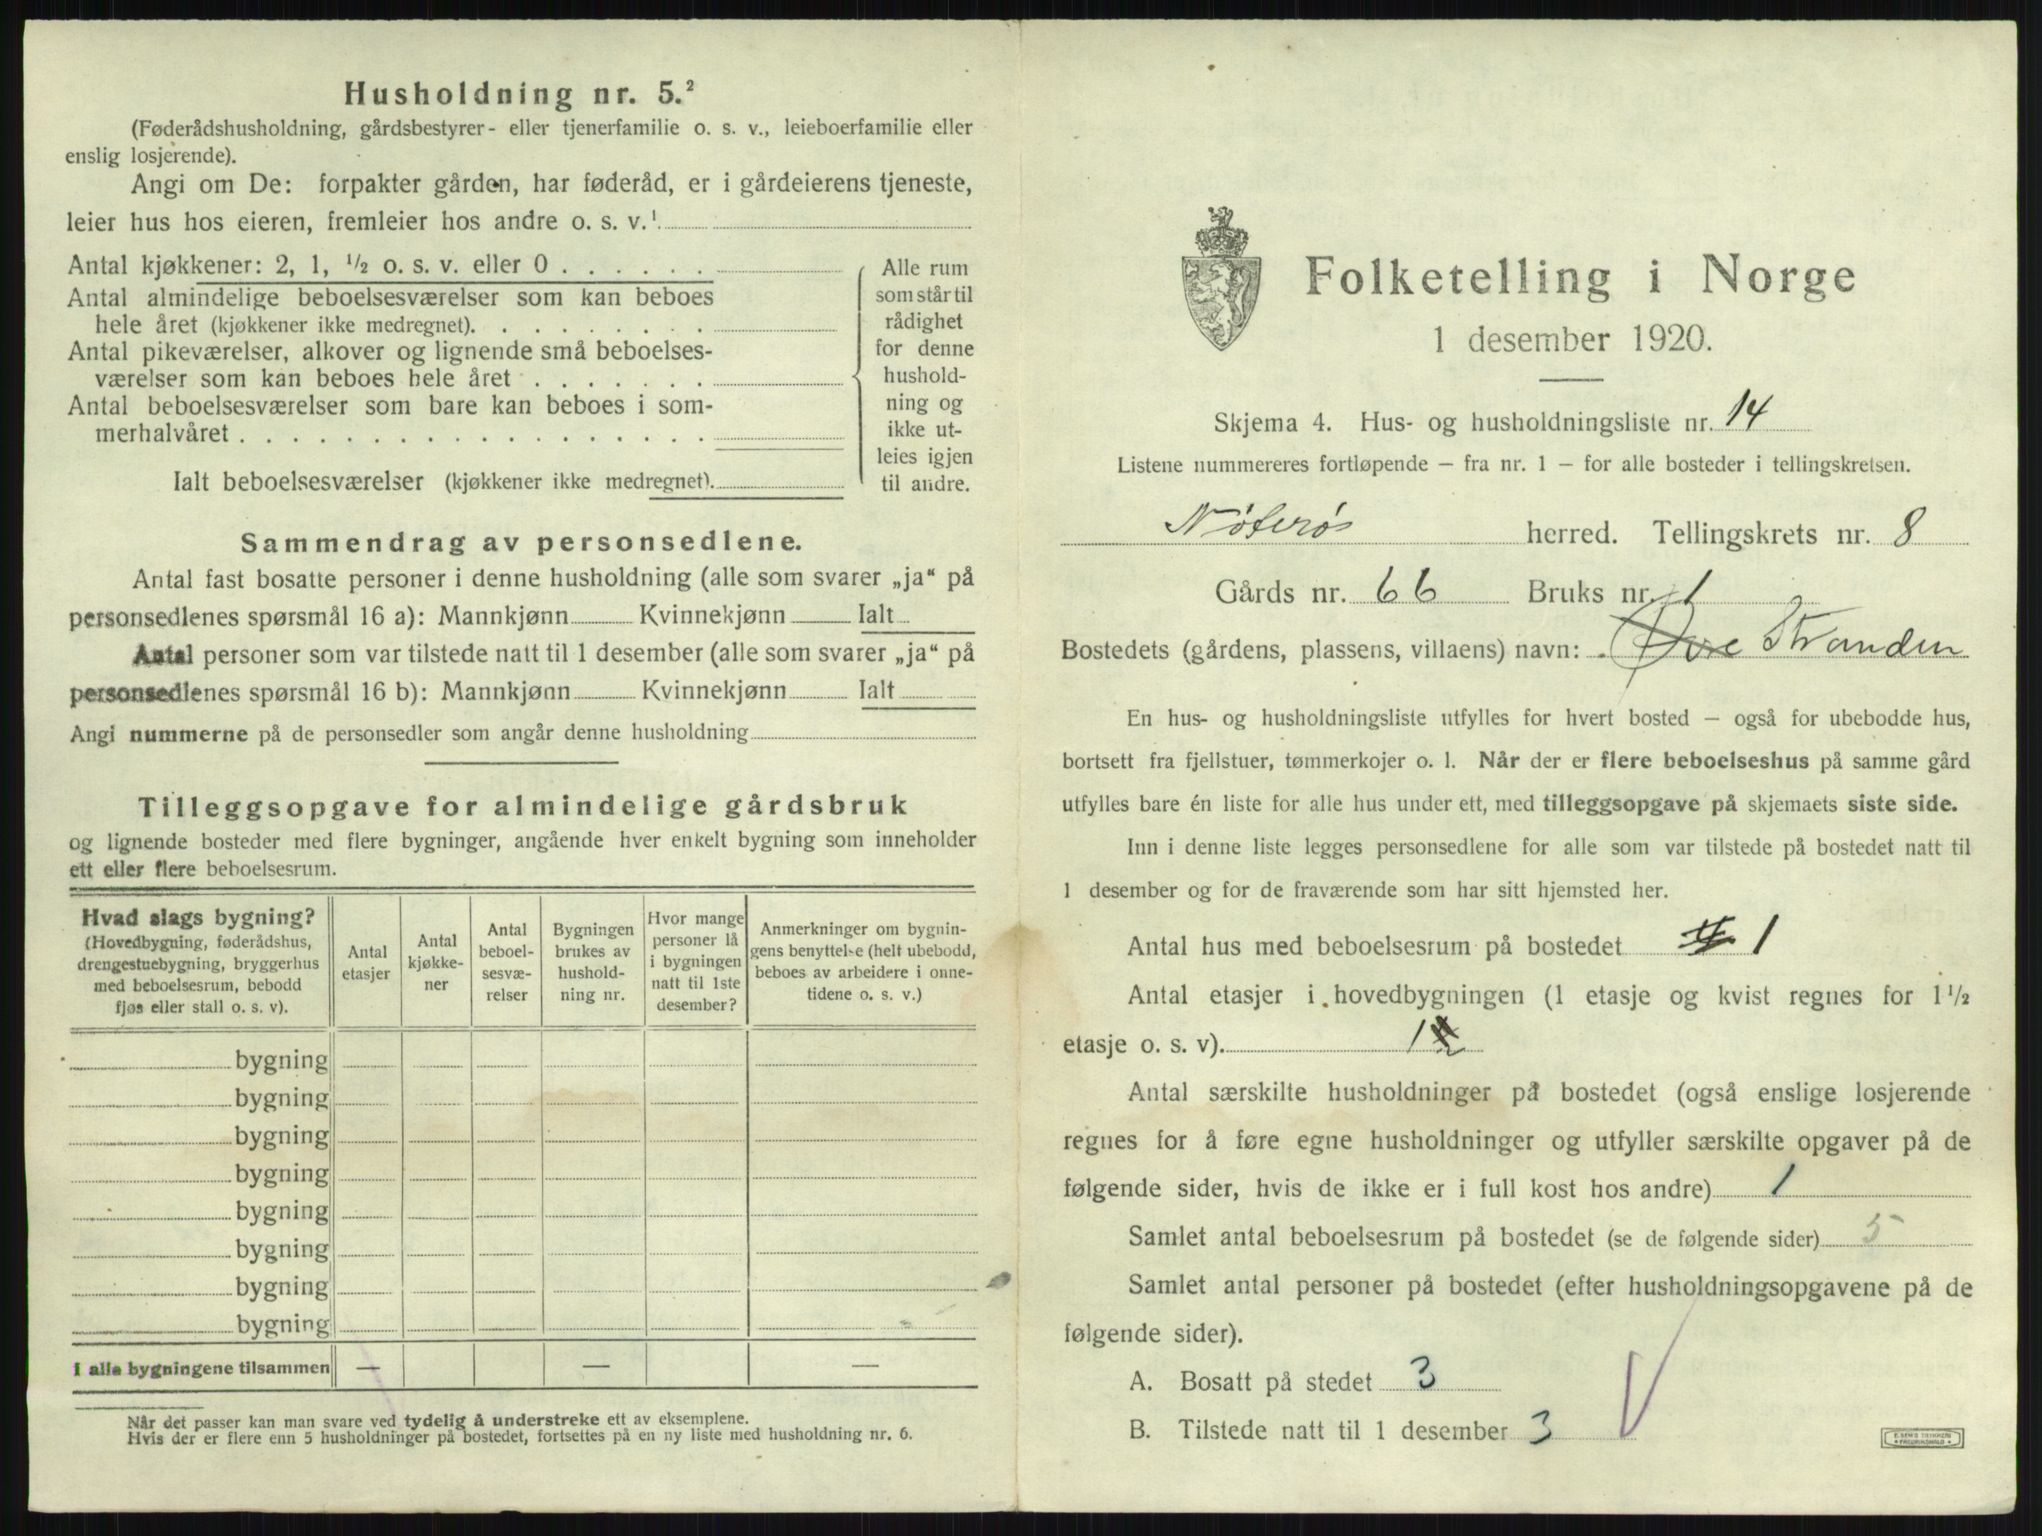 Husholdning nr. 5.²
(Føderådshusholdning, gårdsbestyrer- eller tjenerfamilie o. s. v., leieboerfamilie eller
enslig losjerende).
Angi om De: forpakter gården, har føderåd, er i gårdeierens tjeneste,
leier hus hos eieren, fremleier hos andre o. s. v.¹
Antal kjøkkener: 2, 1, ½ o. s. v. eller 0 . . . . . .
Antal almindelige beboelsesværelser som kan beboes
hele året (kjøkkener ikke medregnet). . . . . . . . .
Antal pikeværelser, alkover og lignende små beboelses-
værelser som kan beboes hele året . . . . . . .
Antal beboelsesværelser som bare kan beboes i som-
merhalvåret . . . . . . . . . . . . . . . . . .
Ialt beboelsesværelser (kjøkkener ikke medregnet).
Alle rum
som står til
rådighet
for denne
hushold-
ning og
ikke ut-
leies igjen
til andre.
Sammendrag av personsedlene.
Antal fast bosatte personer i denne husholdning (alle som svarer „ja“ på
personsedlenes spørsmål 16 a): Mannkjønn Kvinnekjønn Ialt
Antal personer som var tilstede natt til 1 desember (alle som svarer „ja“ på
personsedlenes spørsmål 16 b): Mannkjønn Kvinnekjønn Ialt
Angi nummerne på de personsedler som angår denne husholdning
Tilleggsopgave for almindelige gårdsbruk
og lignende bosteder med flere bygninger, angående hver enkelt bygning som inneholder
ett eller flere beboelsesrum.
Hvad slags bygning?
(Hovedbygning, føderådshus,
drengestuebygning, bryggerhus
med beboelsesrum, bebodd
fjøs eller stall o. s. v).
Antal
etasjer
Antal
kjøkke-
ner
Antal
beboel-
sesvæ-
relser
Bygningen
brukes av
hushold-
ning nr.
Hvor mange
personer lå
i bygningen
natt til 1ste
desember?
Anmerkninger om bygnin-
gens benyttelse (helt ubebodd,
beboes av arbeidere i onne-
tidene o. s. v.)
bygning
bygning
bygning
bygning
bygning
bygning
bygning
bygning
I alle bygningene tilsammen — — —
Når det passer kan man svare ved tydelig å understreke ett av eksemplene.
Hvis der er flere enn 5 husholdninger på bostedet, fortsettes på en ny liste med husholdning nr. 6.
Folketelling i Norge
1 desember 1920.
Skjema 4. Hus- og husholdningsliste nr. 14
Listene nummereres fortløpende — fra nr. 1 — for alle bosteder i tellingskretsen.
Nøterøs herred. Tellingskrets nr. 8
Gårds nr. 66 Bruks nr. 1
Bostedets (gårdens, plassens, villaens) navn: Øvre Stranden
En hus- og husholdningsliste utfylles for hvert bosted — også for ubebodde hus,
bortsett fra fjellstuer, tømmerkojer o. l. Når der er flere beboelseshus på samme gård
utfylles bare én liste for alle hus under ett, med tilleggsopgave på skjemaets siste side.
Inn i denne liste legges personsedlene for alle som var tilstede på bostedet natt til
1 desember og for de fraværende som har sitt hjemsted her.
Antal hus med beboelsesrum på bostedet 1
Antal etasjer i hovedbygningen (1 etasje og kvist regnes for 1½
etasje o. s. v). 1
Antal særskilte husholdninger på bostedet (også enslige losjerende
regnes for å føre egne husholdninger og utfyller særskilte opgaver på de
følgende sider, hvis de ikke er i full kost hos andre) 1
Samlet antal beboelsesrum på bostedet (se de følgende sider) 5
Samlet antal personer på bostedet (efter husholdningsopgavene på de
følgende sider).
A. Bosatt på stedet 3
B. Tilstede natt til 1 desember 3